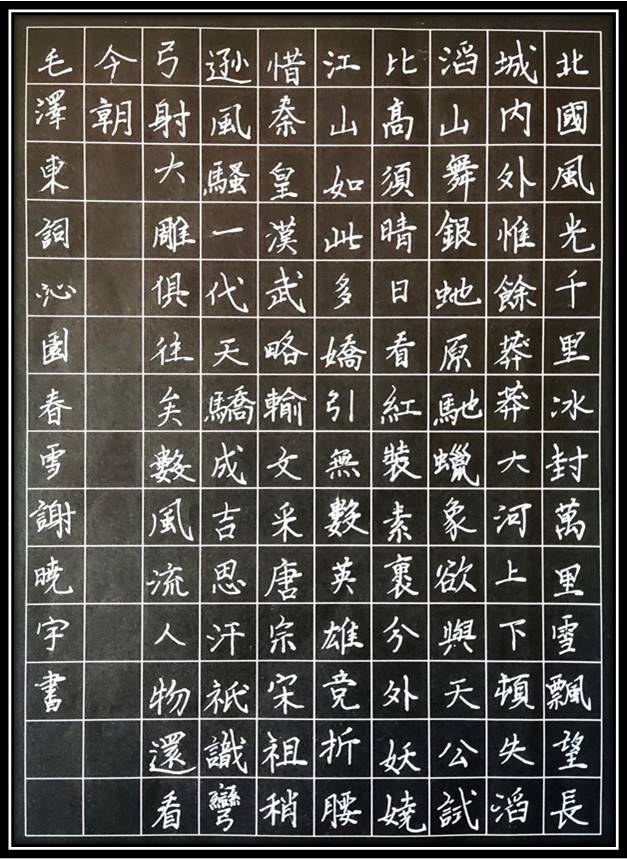 北國風光千里冰封萬里雪飄望長
城内外惟餘莽莽大河上下頓失滔
滔山舞銀虵原馳蠟象欲與天公試
比高須晴日看紅裝素裹分外妖嬈
江山如此多嬌引無數英雄竞折腰
惜秦皇漢武略輸文采唐宗宋祖稍
遜風騷一代天驕成吉思汗祇識彎
弓射大雕俱往矣數風流人物還看
今朝
毛澤東詞沁園春雪謝曉宇書